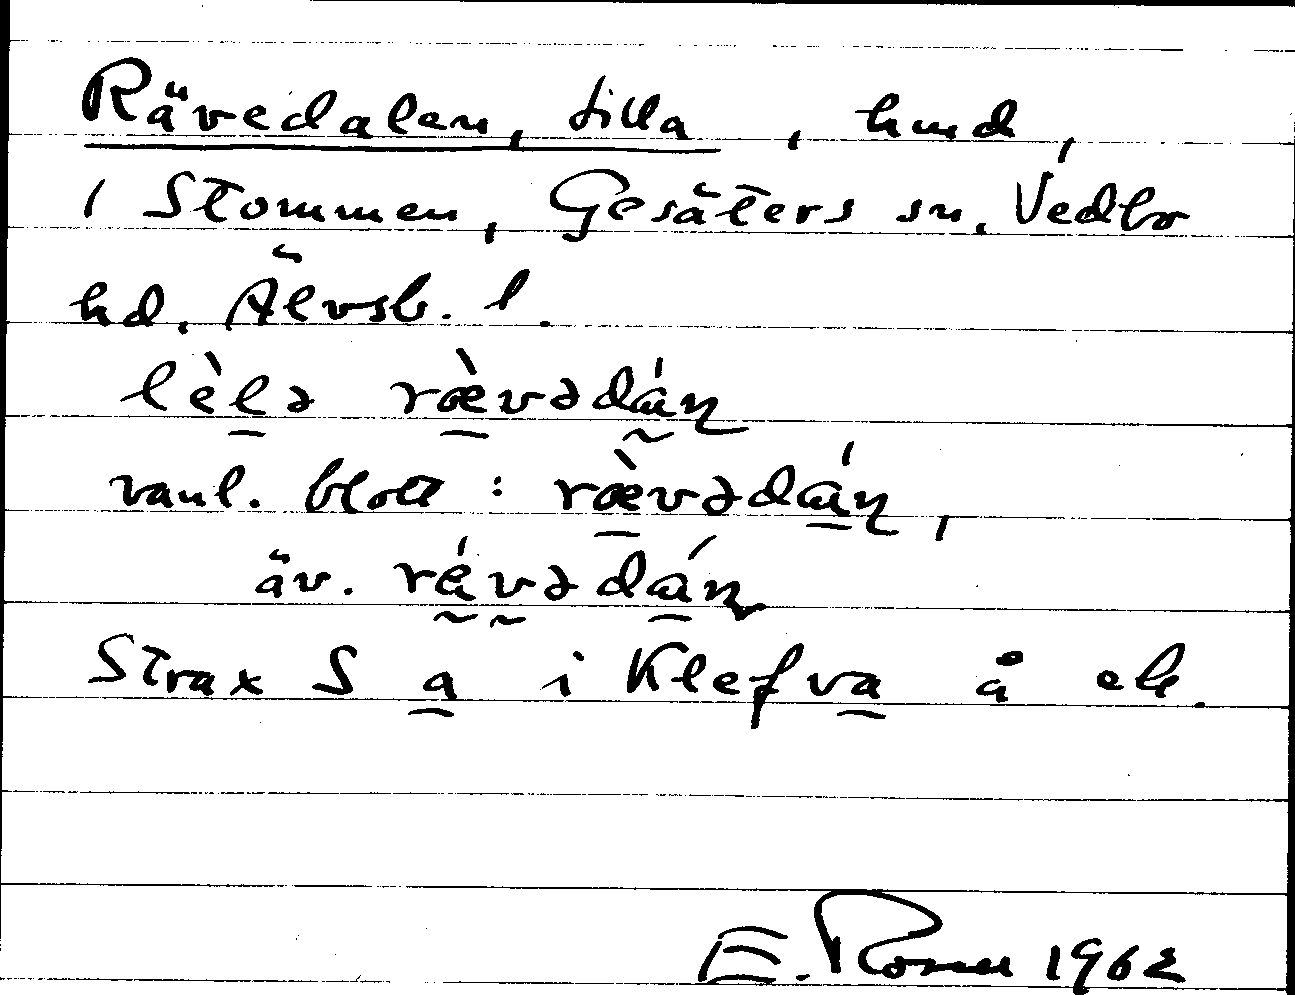 Rävedalen, Lilla, hmd,
i Stommen, Gesäters sn. Vedbo
hd. Älvsb. l.
lèlə rævədáɳ
vanl. blott: rævədáɳ,
äv. révədáɳ
Strax S a i Klefva å ek.
E. Rosell 1962